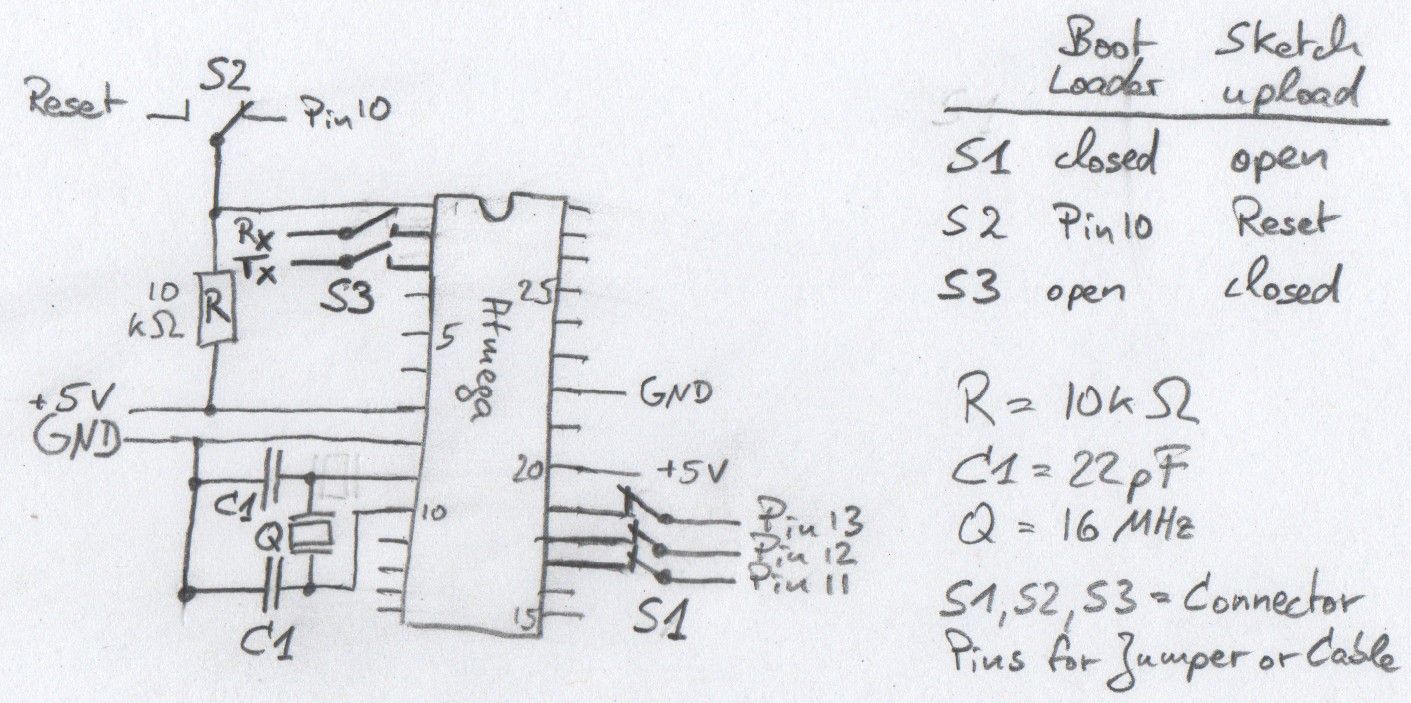 S2
Reset
Pin 10
1
Rx
Tx
S3
10
kΩ
R
25
5
Atmega
+5V
GND
GND
20
+5V
C1
10
Q
Pin 13
Pin 12
Pin 11
15
S1
C1
Boot Sketch
Loader upload
S1 closed open
S2 Pin 10 Reset
S3 open closed
R = 10kΩ
C1 = 22pF
Q = 16 MHz
S1, S2, S3 = Connector
Pins for Jumper or Cable